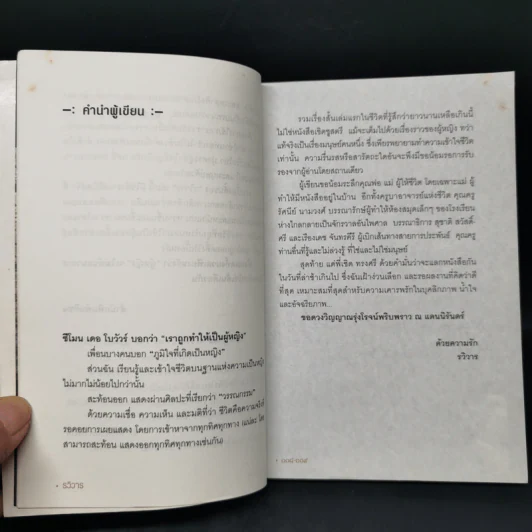 –: คำนำผู้เขียน :–
ซีโมน เดอ โบวัวร์ บอกว่า "เราถูกทำให้เป็นผู้หญิง"
เพื่อนบางคนบอก "ภูมิใจที่เกิดเป็นหญิง"
ส่วนฉัน เรียนรู้และเข้าใจชีวิตบนฐานแห่งความเป็นหญิง
ไม่มากไม่น้อยไปกว่านั้น
สะท้อนออก แสดงผ่านศิลปะที่เรียกว่า "วรรณกรรม"
ด้วยความเชื่อ ความเห็น และมติที่ว่า ชีวิตคือความจริงที่
รอคอยการเผยแสดง โดยการเข้าหาจากทุกทิศทุกทาง
สามารถสะท้อน แสดงออกทุกทิศทุกทางเช่นกัน)
• รวิวาร
รวมเรื่องสั้นเล่มแรกในชีวิตที่รู้สึกว่ายาวนานเหลือเกินนี้
ไม่ใช่หนังสือเชิดชูสตรี แม้จะเต็มไปด้วยเรื่องราวของผู้หญิง ทว่า
แท้จริงเป็นเรื่องมนุษย์คนหนึ่ง ซึ่งเพียรพยายามทำความเข้าใจชีวิต
เท่านั้น ความรื่นรสหรือสารัตถะใดอันจะพึงมีขอน้อมรอการรับ
รองจากผู้อ่านโดยสถานเดียว
ผู้เขียนขอน้อมระลึกคุณพ่อ แม่ ผู้ให้ชีวิต โดยเฉพาะแม่ ผู้
ทำให้มีหนังสืออยู่ในบ้าน อีกทั้งครูบาอาจารย์แห่งชีวิต คุณครู
รัศนีย์ นามวงศ์ บรรณารักษ์ผู้ทำให้ห้องสมุดเล็กๆ ของโรงเรียน
ห่างไกลกลายเป็นจักรวาลอันไพศาล บรรณาธิการ สุชาติ สวัสดิ์
ศรี และเรืองเดช จันทรคีรี ผู้เบิกเส้นทางสายการประพันธ์ คุณครู
ท่านอื่นที่รู้และไม่ล่วงรู้ ที่ใช่และไม่ใช่มนุษย์
สุดท้าย แด่พี่เชิด ทรงศรี ด้วยคำมั่นว่าจะแลกหนังสือกัน
ในวันที่ล่าช้าเกินไป ซึ่งฉันเฝ้าง่วนเลือก และรอผลงานที่คิดว่าดี
ที่สุด เหมาะสมที่สุดสำหรับความเคารพรักในบุคลิกภาพ น้ำใจ
และอัจฉริยภาพ...
ขอดวงวิญญาณรุ่งโรจน์พริบพราว ณ แดนนิรันดร์
ด้วยความรัก
รวิวาร